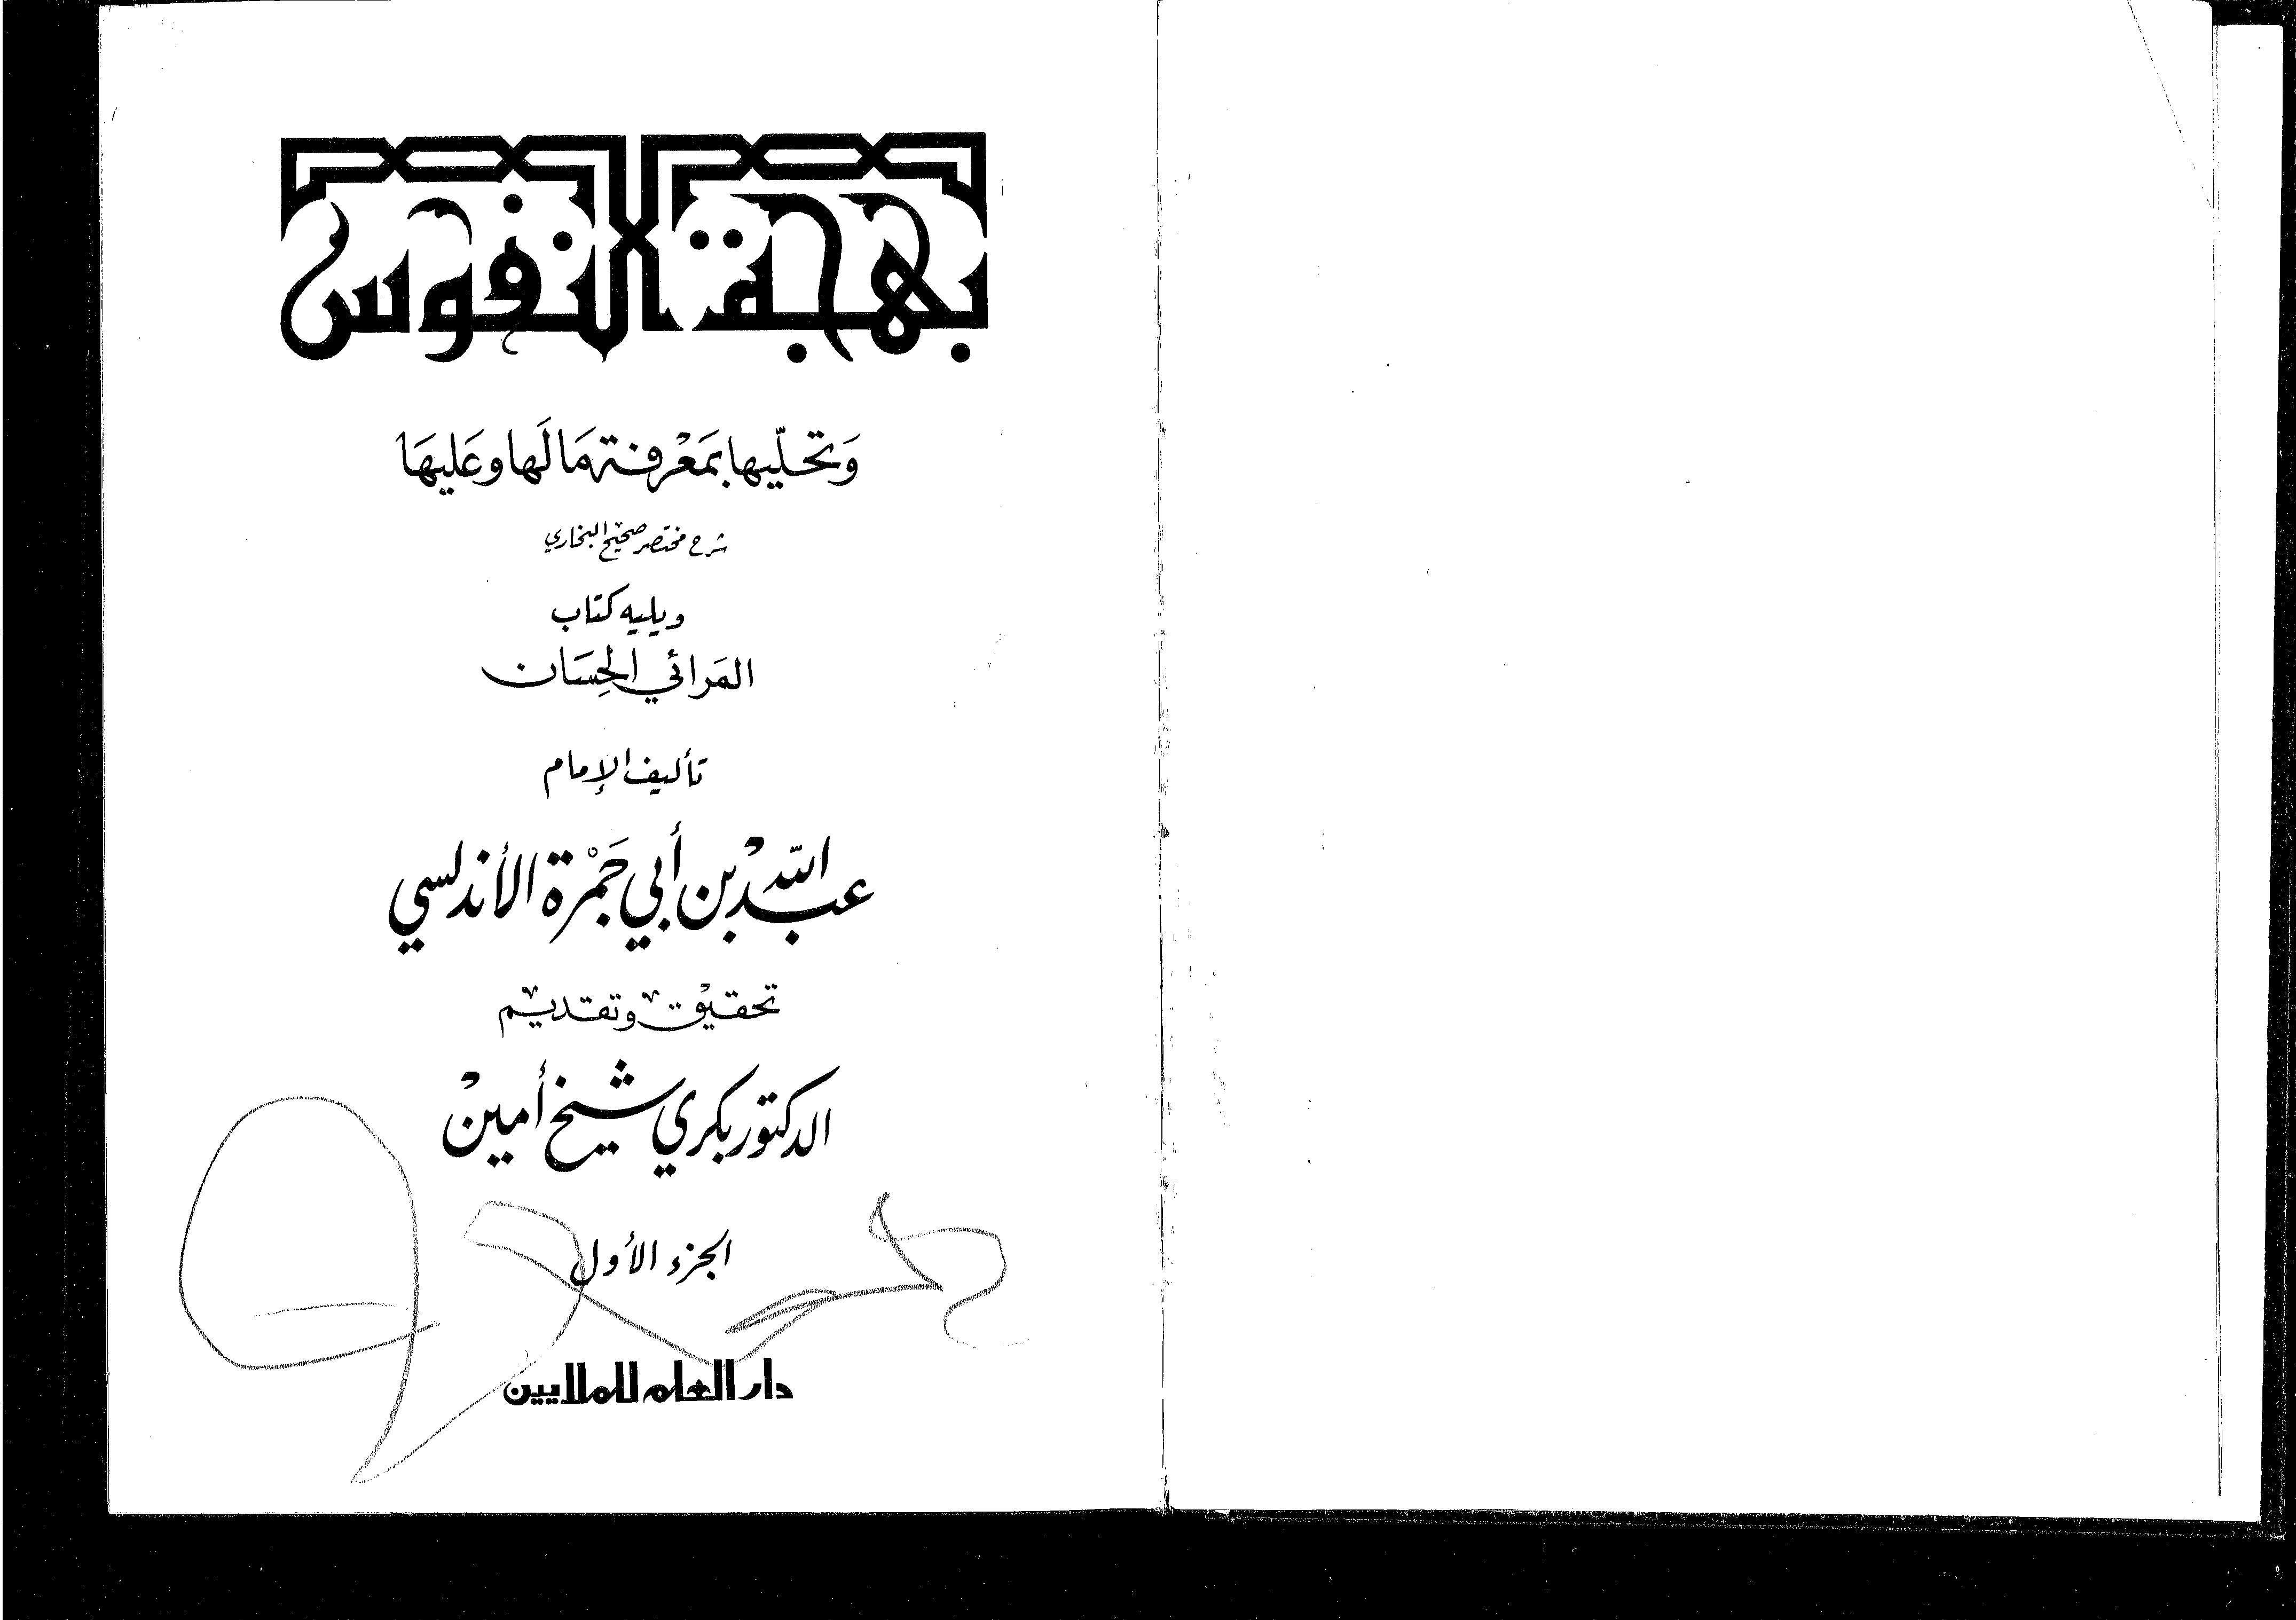 بهجة النفوس
وَتحلّيها بمَعْرفة مَا لَها وعَليهَا
شرح مختصر صحيح البخاري
ويليه كتاب
المَرائي الحِسَان
تأليف الإمام
عبد الله بن أبي جَمْرة الأندلسي
تحقيق وتقديم
الدكتور بكري شيخ أمين
الجزء الأول
دار العلم للملايين